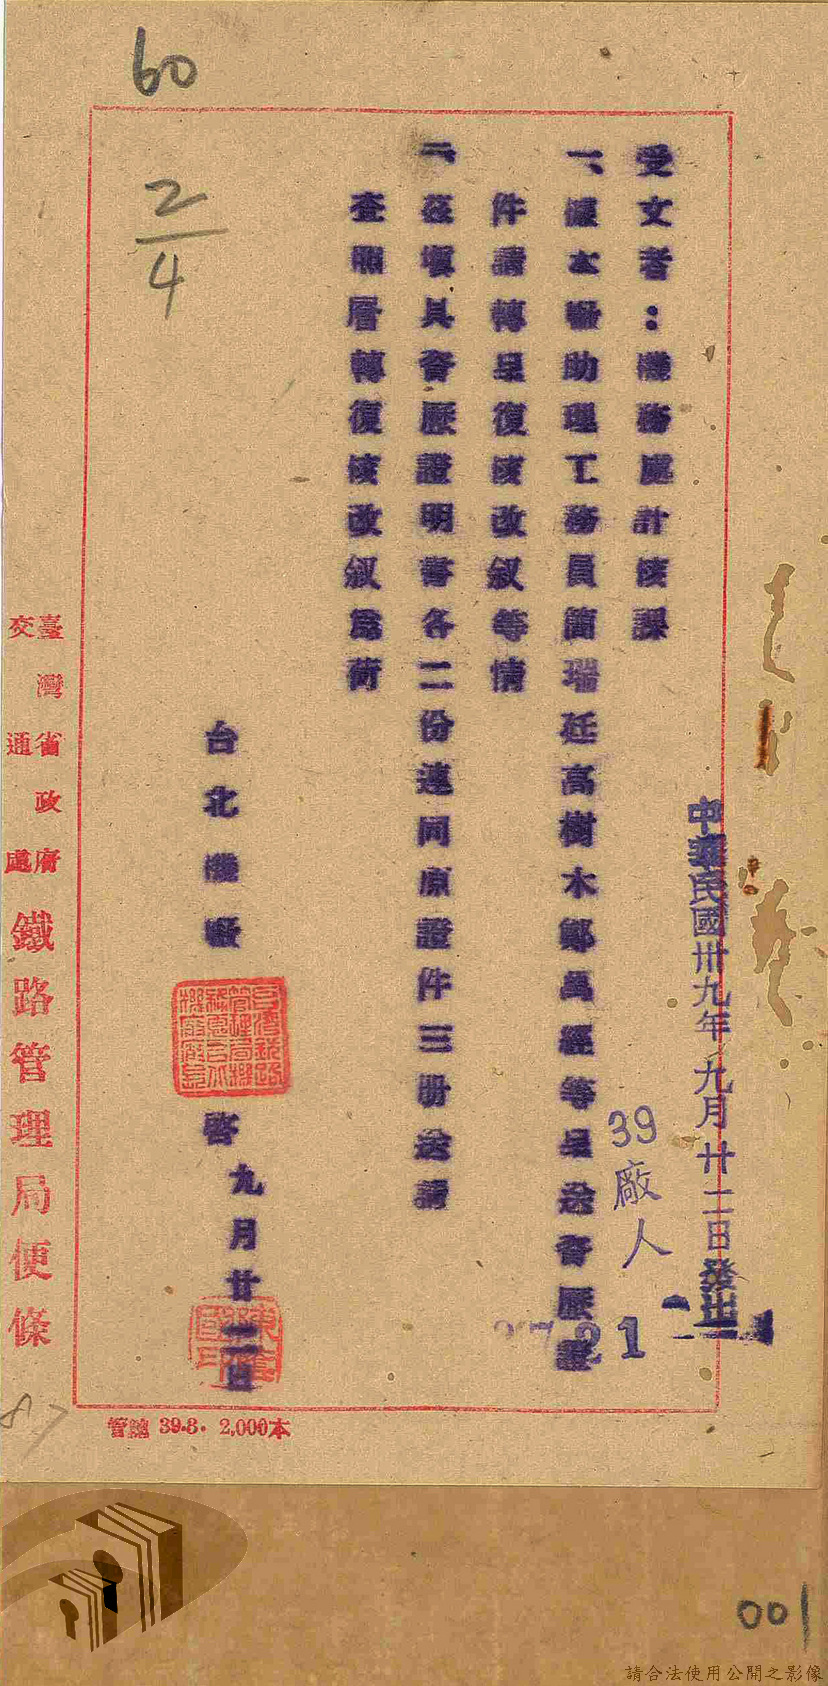 60
2/4
中華民國卅九年九月廿二日發出
39廠人
21
受文者：機務處計核課
一、據本廠助理工務員簡瑞廷高樹木鄭萬經等呈送資歷證
件請轉呈復核改叙等情
二、茲填具資歷證明書各二份連同原證件三册送請
查照層轉復核改叙為荷
台北機廠
啓
九月廿二日
臺灣省政府
交通處
鐵路管理局便條
管總 39.8. 2,000本
87
001
請合法使用公開之影像